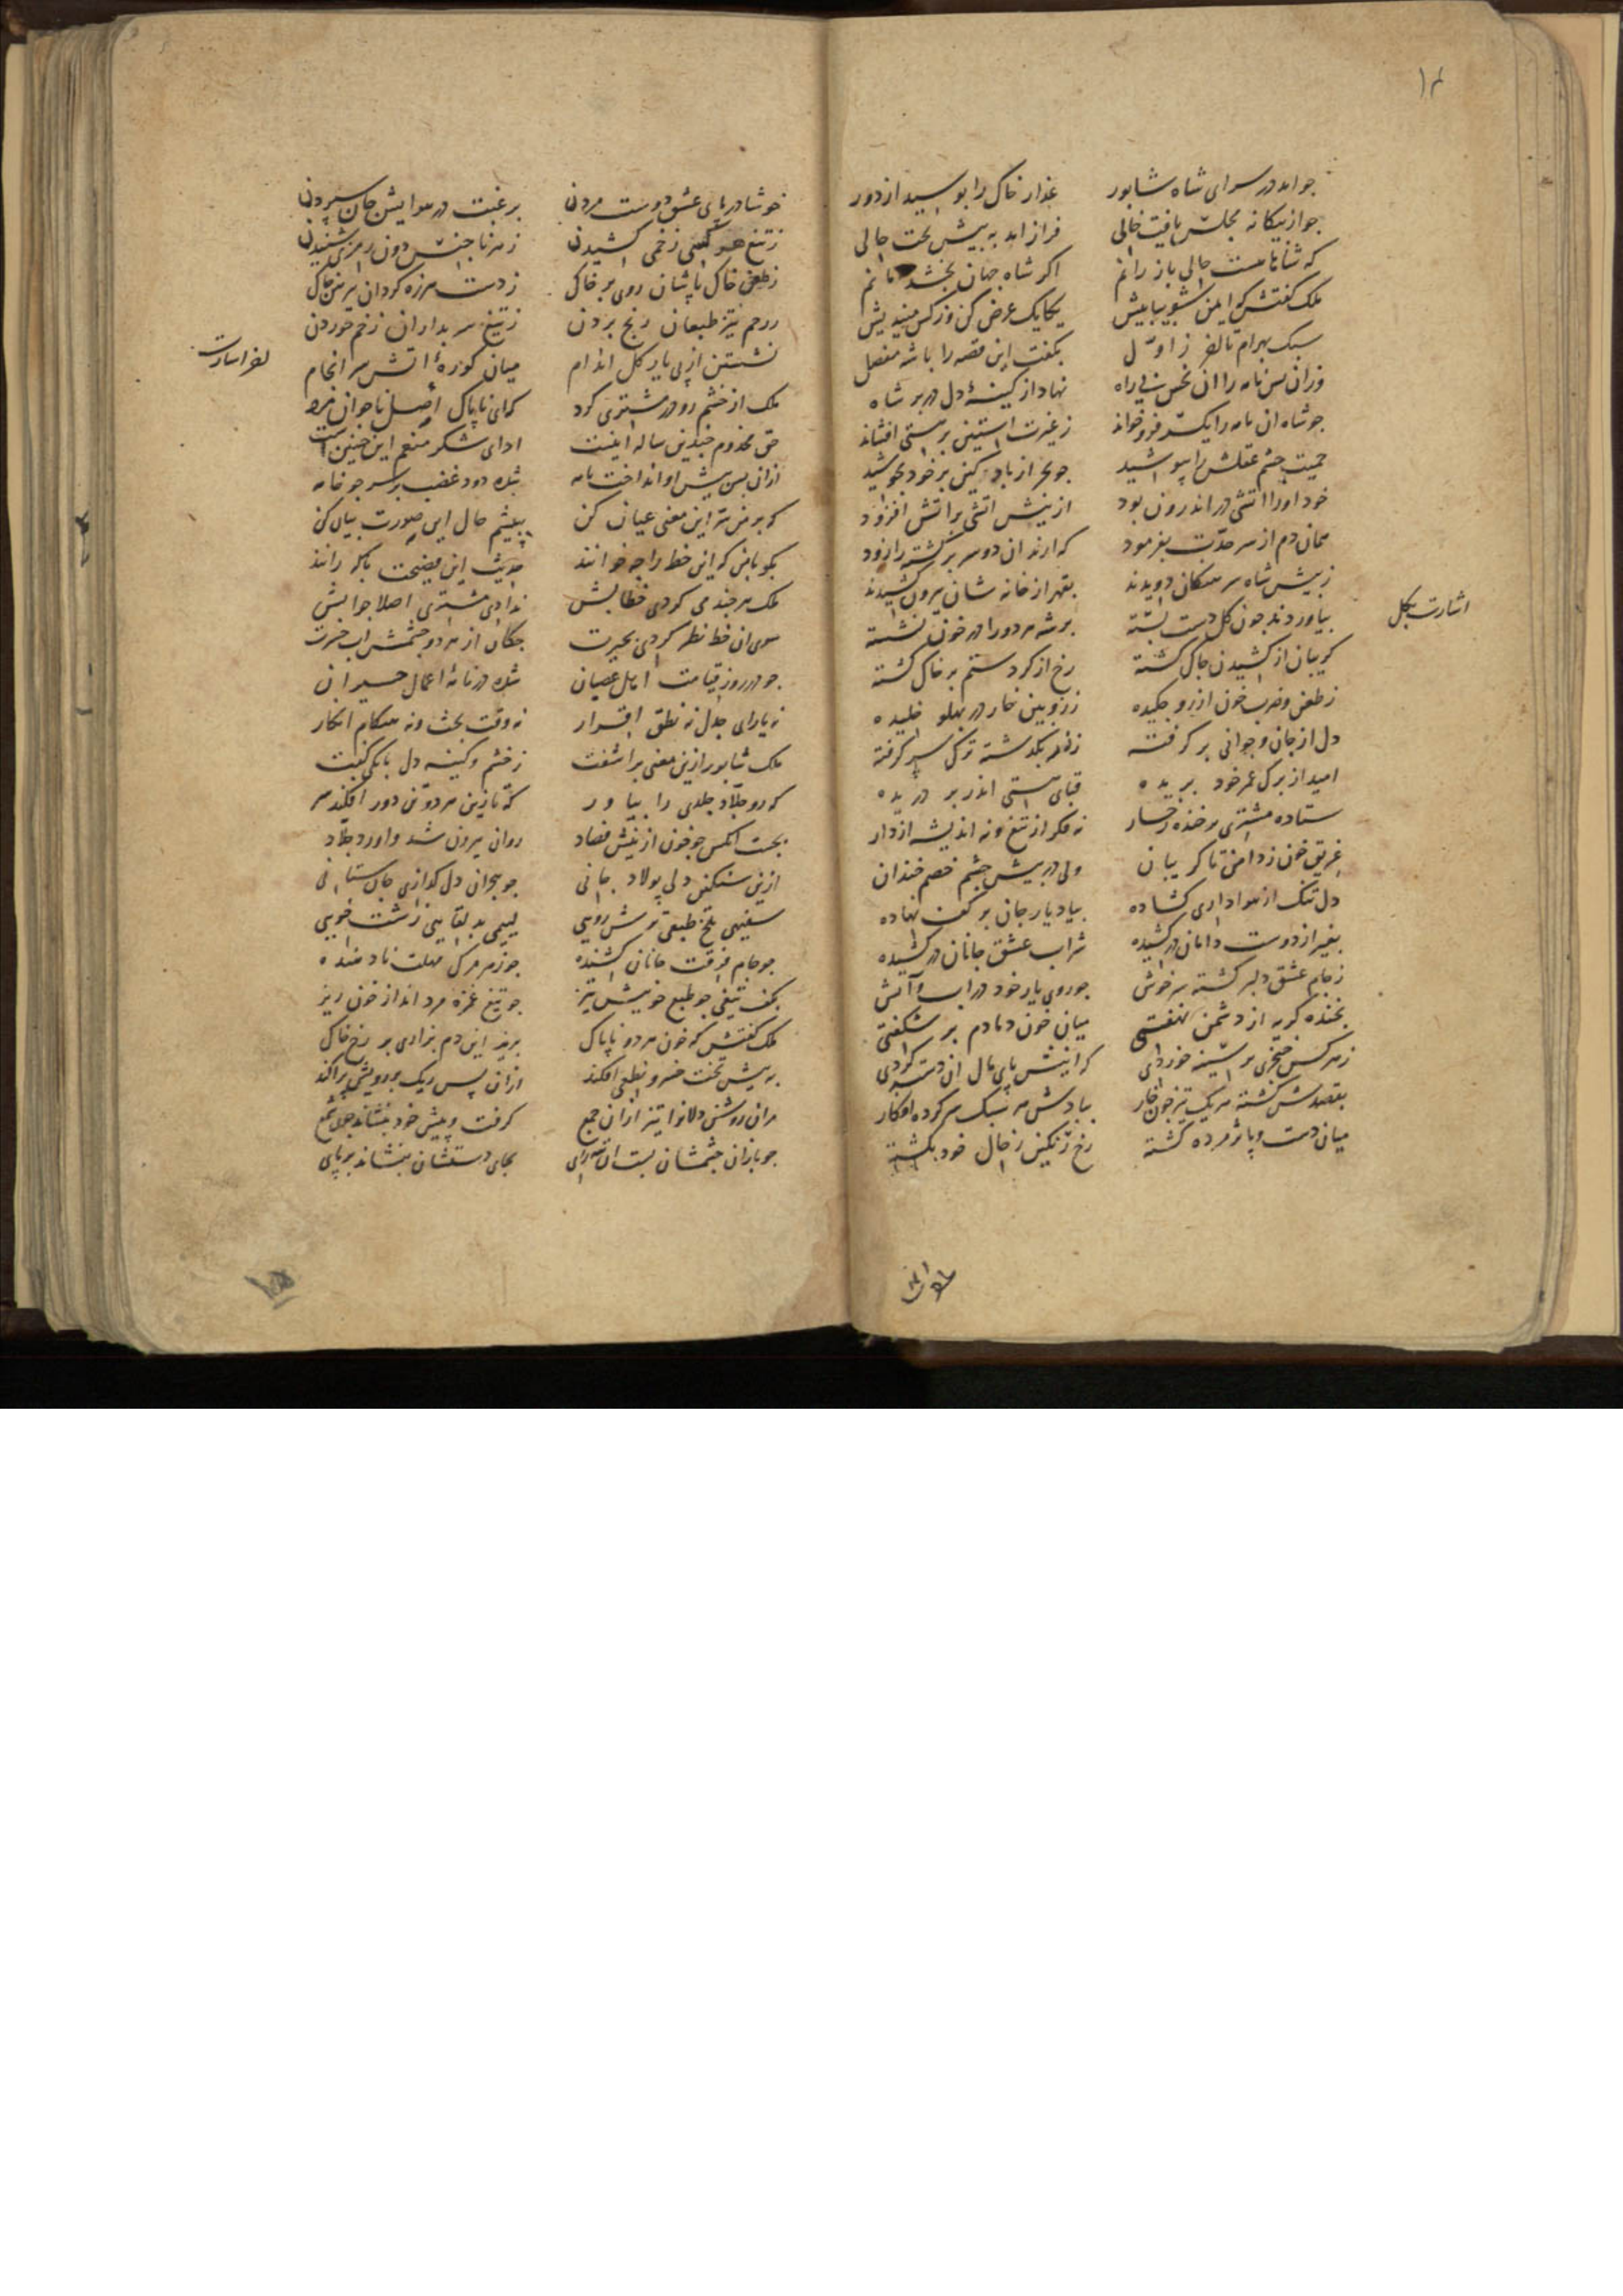 جو امد در سرای شاه شابور عذار خاک را بوسید از دور
جو از بیکانه مجلس یافت خالی فراز امد به بیش تخت حالی
که شاها هست حالی باز رانم اکر شاه جهان بخشد امانم
ملک کفتش که ایمن شو بیا بیش یکایک عرض کن وز کس میندیش
سبک بهرام ز اول بکفت این قصه را با شه مفصل
وزان بس نامه را ان نحس بی راه نهاد از کینهٔ دل در بر شاه
جو شاه ان نامه را یکسر فرو خواند ز غیرت استین بر هستی افشاند
حمیت جشم عقلش را بپوشید جو بحر از باد کین بر خود بجوشید
خود او را اتشی در اندرون بود ازینش اتشی بر اتش افزود
همان دم از سر حدت بفرمود که ارند ان دو سر برکشته را زود
ز بیش شاه سرهنکان دویدند بقهر از خانه شان بیرون کشیدند
بیاوردند جون کل دست بسته بر شه هر دو را در خون نشسته
اشارت بکل
کریبان از کشیدن جاک کشته رخ از کرد ستم بر خاک کشته
ز طعن و ضرب خون از رو جکیده ز زوبین خار در بهلو خلیده
دل از جان و جوانی بر کرفته ز بکذشته ترک سر کرفته
امید از برک عمر خود بریده قبای هستی اندر بر دریده
ستاده مشتری بر خنده رخسار نه فکر از تیغ و نه اندیشه از دار
غریق خون ز دامن تا کریبان ولی در بیش جشم خصم خندان
دل تنک از هواداری کشاده بیاد یار جان بر کف نهاده
بغیر از دوست دامان در کشیده شراب عشق جانان در کشیده
ز جام عشق دلبر کشته سرخوش جو روی یار خود در اب و آتش
بخنده کریه از دشمن نهفتی میان خون دمادم بر شکفتی
ز هر کس خنجری بر سینه خوردی که اینش پای مال ان کردی
بقصدش کشته هر یک تیز جون خار ببادش هر سبک سر کرده افکار
میان دست و پا پژمرده کشته رخ رنکین ز حال خود بکشته
خوشا در پای عشق دوست مردن برغبت در هوایش جان سپردن
ز تیغ هر کسی زخمی کشیدن ز هر ناجنس دون رمزی شنیدن
ز طعن خاک پاشان روی بر خاک ز دست هرزه کردان پیرهن جاک
تیز طبعان رنج بردن ز تیغ سربداران زخم خوردن
نشستن از پی یار کل اندام میان کورهٔ اتش سرانجام
ملک از خشم رو در مشتری کرد که ای ناپاک اصل ناجوانمرد
حق مخدوم جندین ساله اینست ادای شکر منعم این جنین است
ازان بس بیش او انداخت نامه شده دود غضب بر سر جو خامه
که بر من سر این معنی عیان کن ببیشم حال این صورت بیان کن
بکو با من که این خط را جه خوانند حدیث این فضیحت باکه رانند
ملک هر جند می کردی خطابش ندادی مشتری اصلا جوابش
سوی ان خط نظر کردی بحیرت جکان از هر دو جشمش اب حسرت
جو در روز قیامت اهل عصیان شده در نامهٔ اعمال حیران
نه یارای جدل نه نطق اقرار نه وقت بحث و نه هنکام انکار
ملک شابور ازین معنی براشفت ز خشم و کینه دل بانکی کفت
که رو جلاد جلدی را بیاور که تا زین هر دو تن دور افکند سر
بجست انکس جو خون از نیش فصاد روان بیرون شد و اورد جلاد
ازین سنکین دلی پولاد جانی جو هجران دل کدازی جان ستانی
سفیهی تلخ طبعی ترش رویی لییمی بد لقایی زشت خویی
جو جام فرقت جانان کشنده جو زهر مرک مهلت نادهنده
بکف تیغی جو طبع خویش تیز جو تیغ غمزه مرد انداز خون ریز
ملک کفتش که خون هر دو ناپاک بریز این دم بزاری بر رخ خاک
به بیش تخت خسرو نطعی افکند ازان پس ریک بر رویش پراکند
مران روشن دلانرا تیز ازان جمع کرفت و پیش خود بنشاند جون شمع
جو بازان جشمشان بست ان بجای دستشان بنشاند بر پای